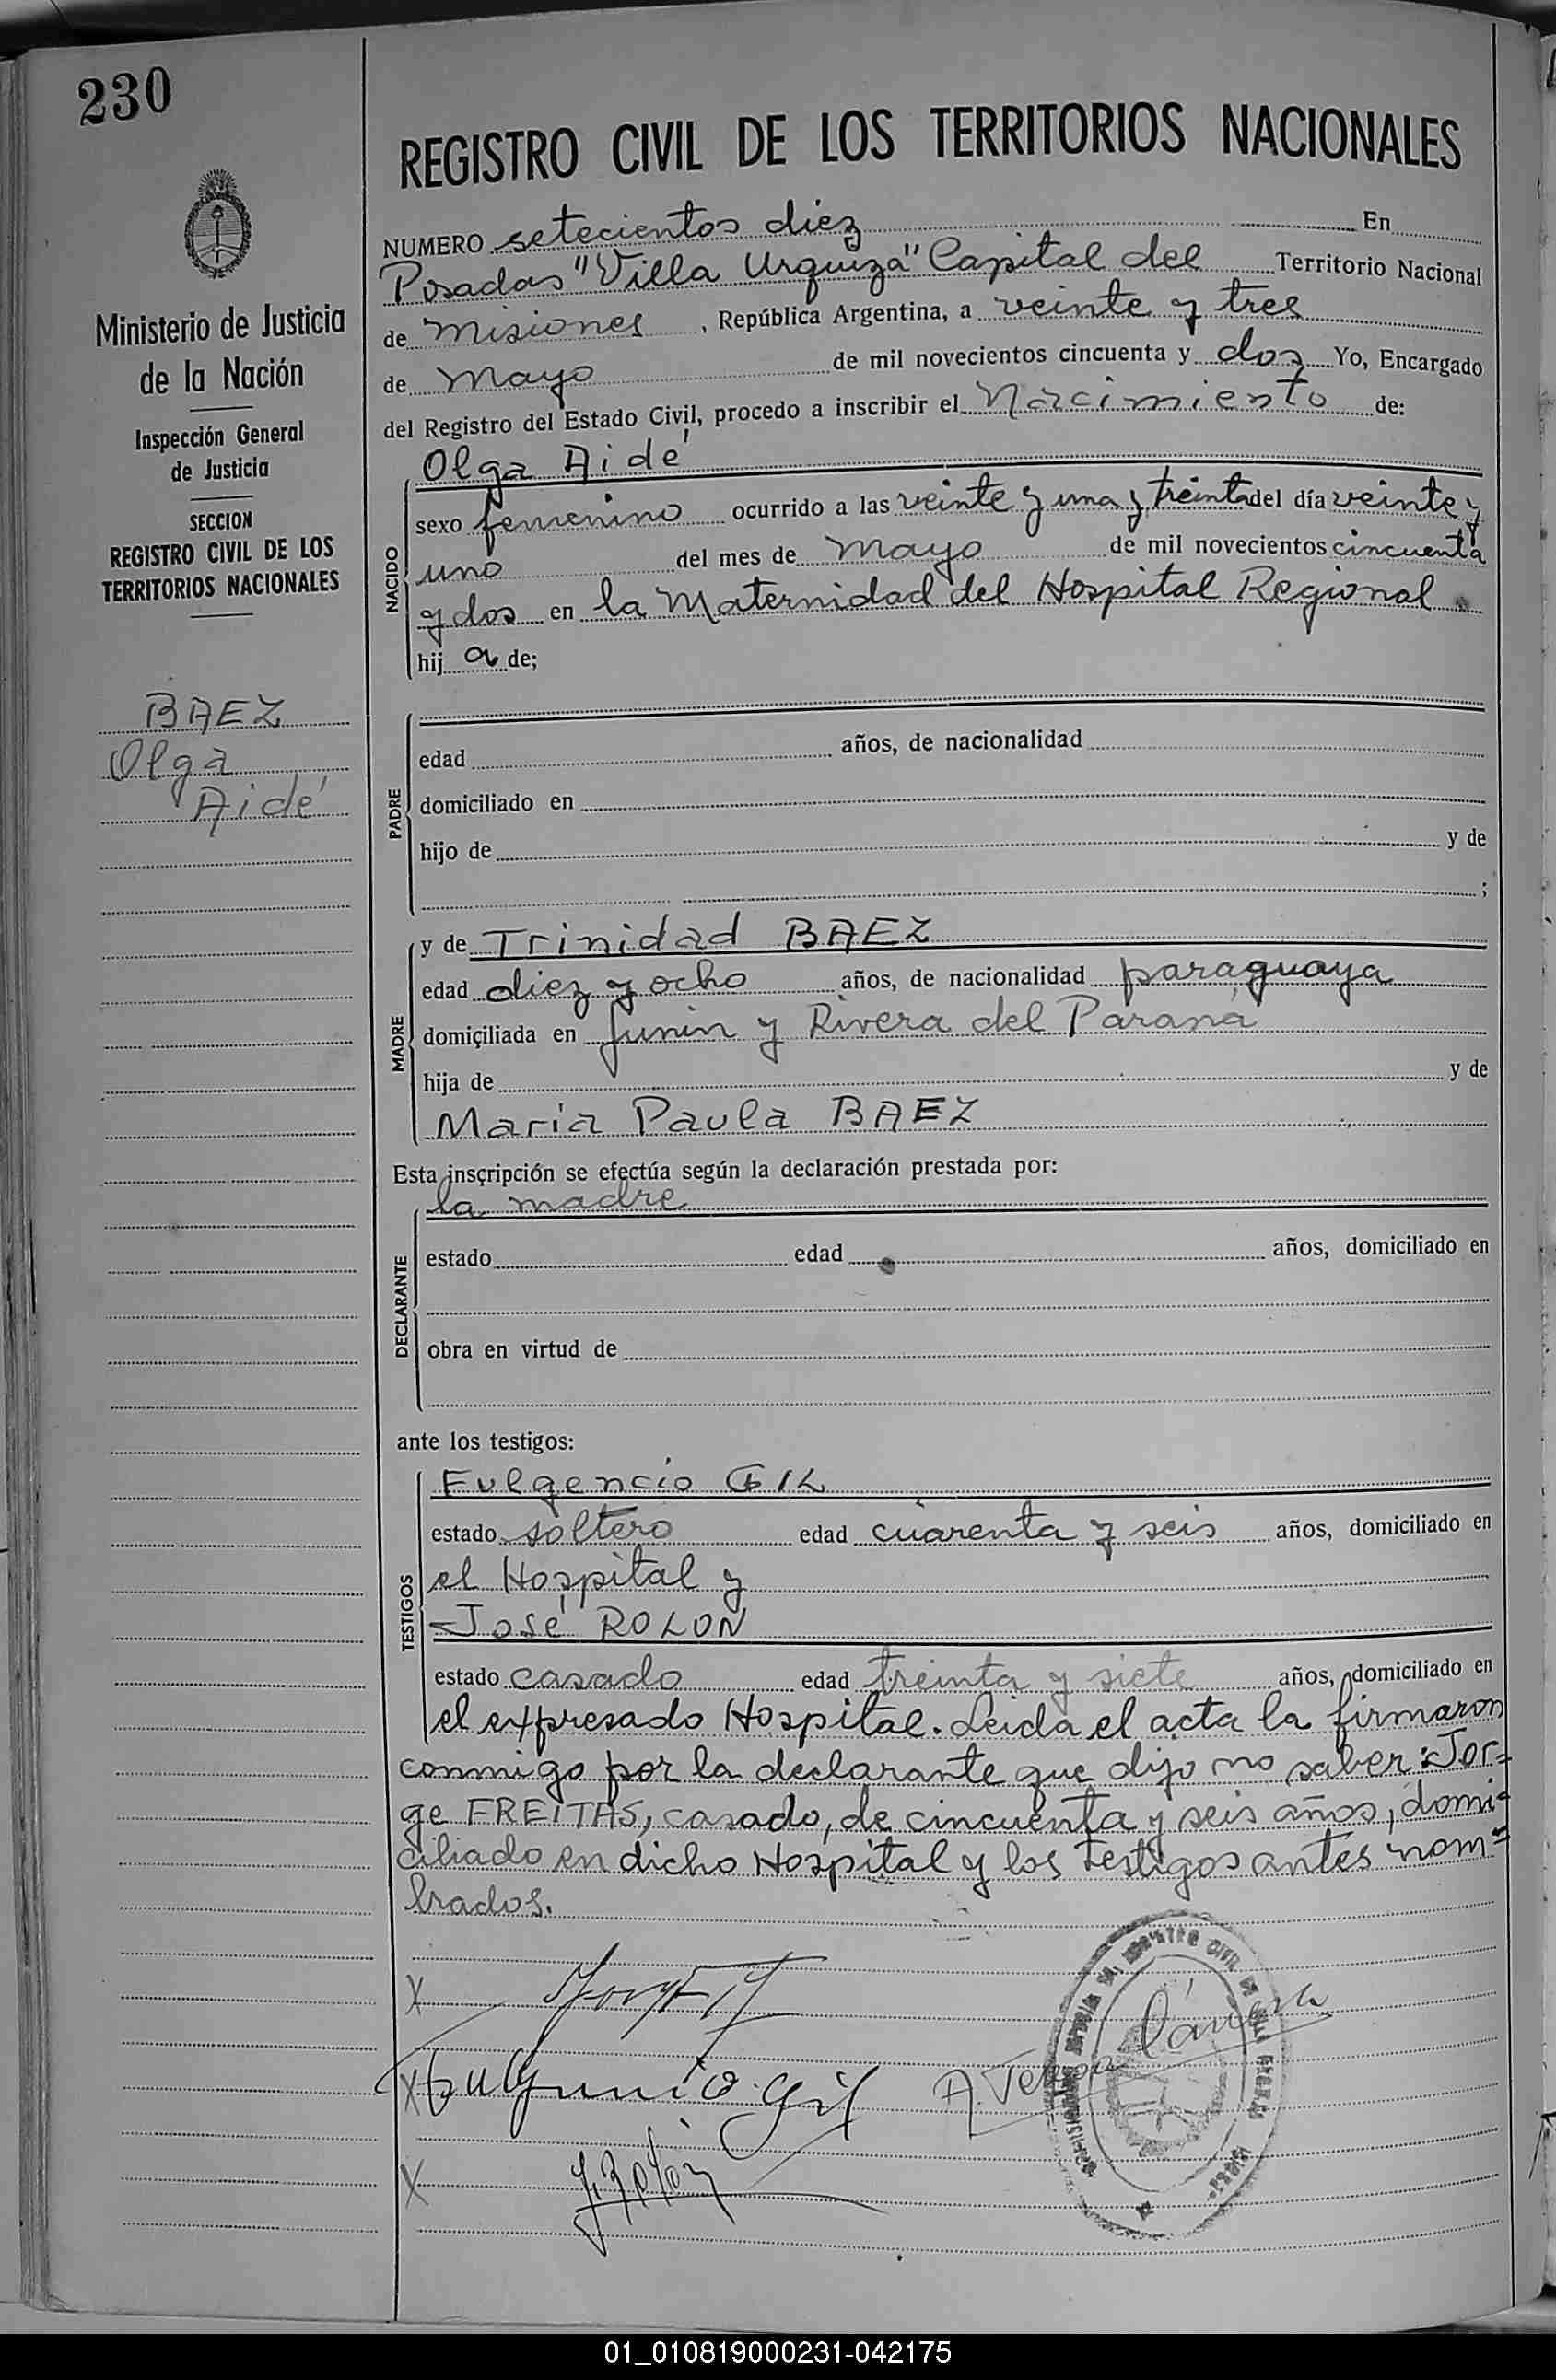 230
Ministerio de Justicia
de la Nación
Inspección General
de Justicia
SECCION
REGISTRO CIVIL DE LOS
TERRITORIOS NACIONALES
BAEZ
Olga
Aidé
REGISTRO CIVIL DE LOS TERRITORIOS NACIONALES
NUMERO setecientos diez En
Posadas "Villa Urquiza" Capital del Territorio Nacional
de Misiones, República Argentina, a veinte y tres
de Mayo de mil novecientos cincuenta y dos Yo, Encargado
del Registro del Estado Civil, procedo a inscribir el Nacimiento de:
Olga Aidé
NACIDO
sexo femenino ocurrido a las veinte y una y treinta del día veinte y
uno del mes de Mayo de mil novecientos cincuenta
y dos en la Maternidad del Hospital Regional
hij a de;
PADRE
edad años, de nacionalidad
domiciliado en
hijo de y de
;
MADRE
y de Trinidad BAEZ
edad diez y ocho años, de nacionalidad paraguaya
domiciliada en Junin y Rivera del Paraná
hija de y de
Maria Paula BAEZ
Esta inscripción se efectúa según la declaración prestada por:
la madre
DECLARANTE
estado edad años, domiciliado en
obra en virtud de
ante los testigos:
TESTIGOS
Fulgencio GIL
estado soltero edad cuarenta y seis años, domiciliado en
el Hospital y
José ROLON
estado casado edad treinta y siete años, domiciliado en
el expresado Hospital. Leida el acta la firmaron
conmigo por la declarante que dijo no saber: Jor=
ge FREITAS, casado, de cincuenta y seis años, domi=
ciliado en dicho Hospital y los testigos antes nom=
brados.
X
X Fulgencio Gil
X J. Rolon
REGISTRO CIVIL DE
01_010819000231-042175